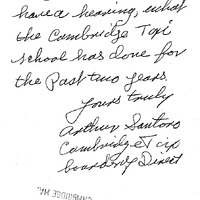 have a hearing, what
the Cambridge Taxi
school has done for
the Past two years.
Yours truly
Arthur Santoro
Cambridge Taxi
board of Direct
CAMBRIDGE MA.